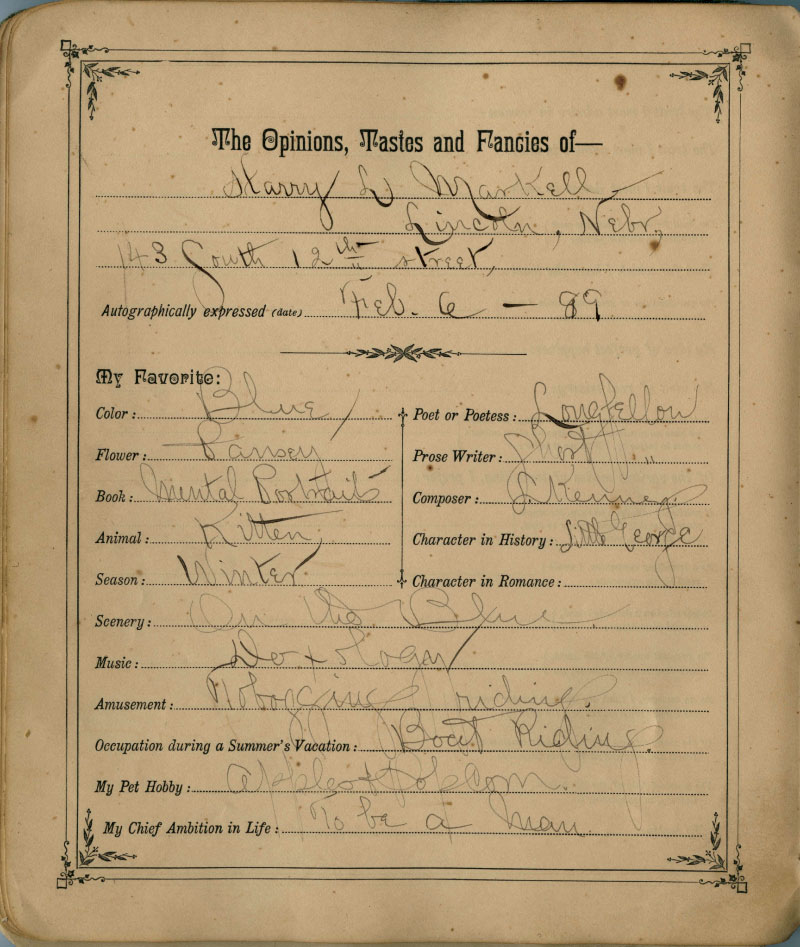 The Opinions, Tastes and Fancies of—
Harry L Markell
Lincoln, Nebr,
143 South 12th street,
Autographically expressed (date) Feb. 6 — 89
My Favorite:
Color: Blue
Flower: Pansey
Book: Mental Portraits
Animal: Kitten,
Season: Winter
Poet or Poetess: Longfellow
Prose Writer: Short "
Composer:
Character in History: Little George
Character in Romance:
Scenery: On the Blue.
Music: Doxology
Amusement: Tobogging riding.
Occupation during a Summer's Vacation: Boat Riding.
My Pet Hobby: apples &
My Chief Ambition in Life: To be a man.